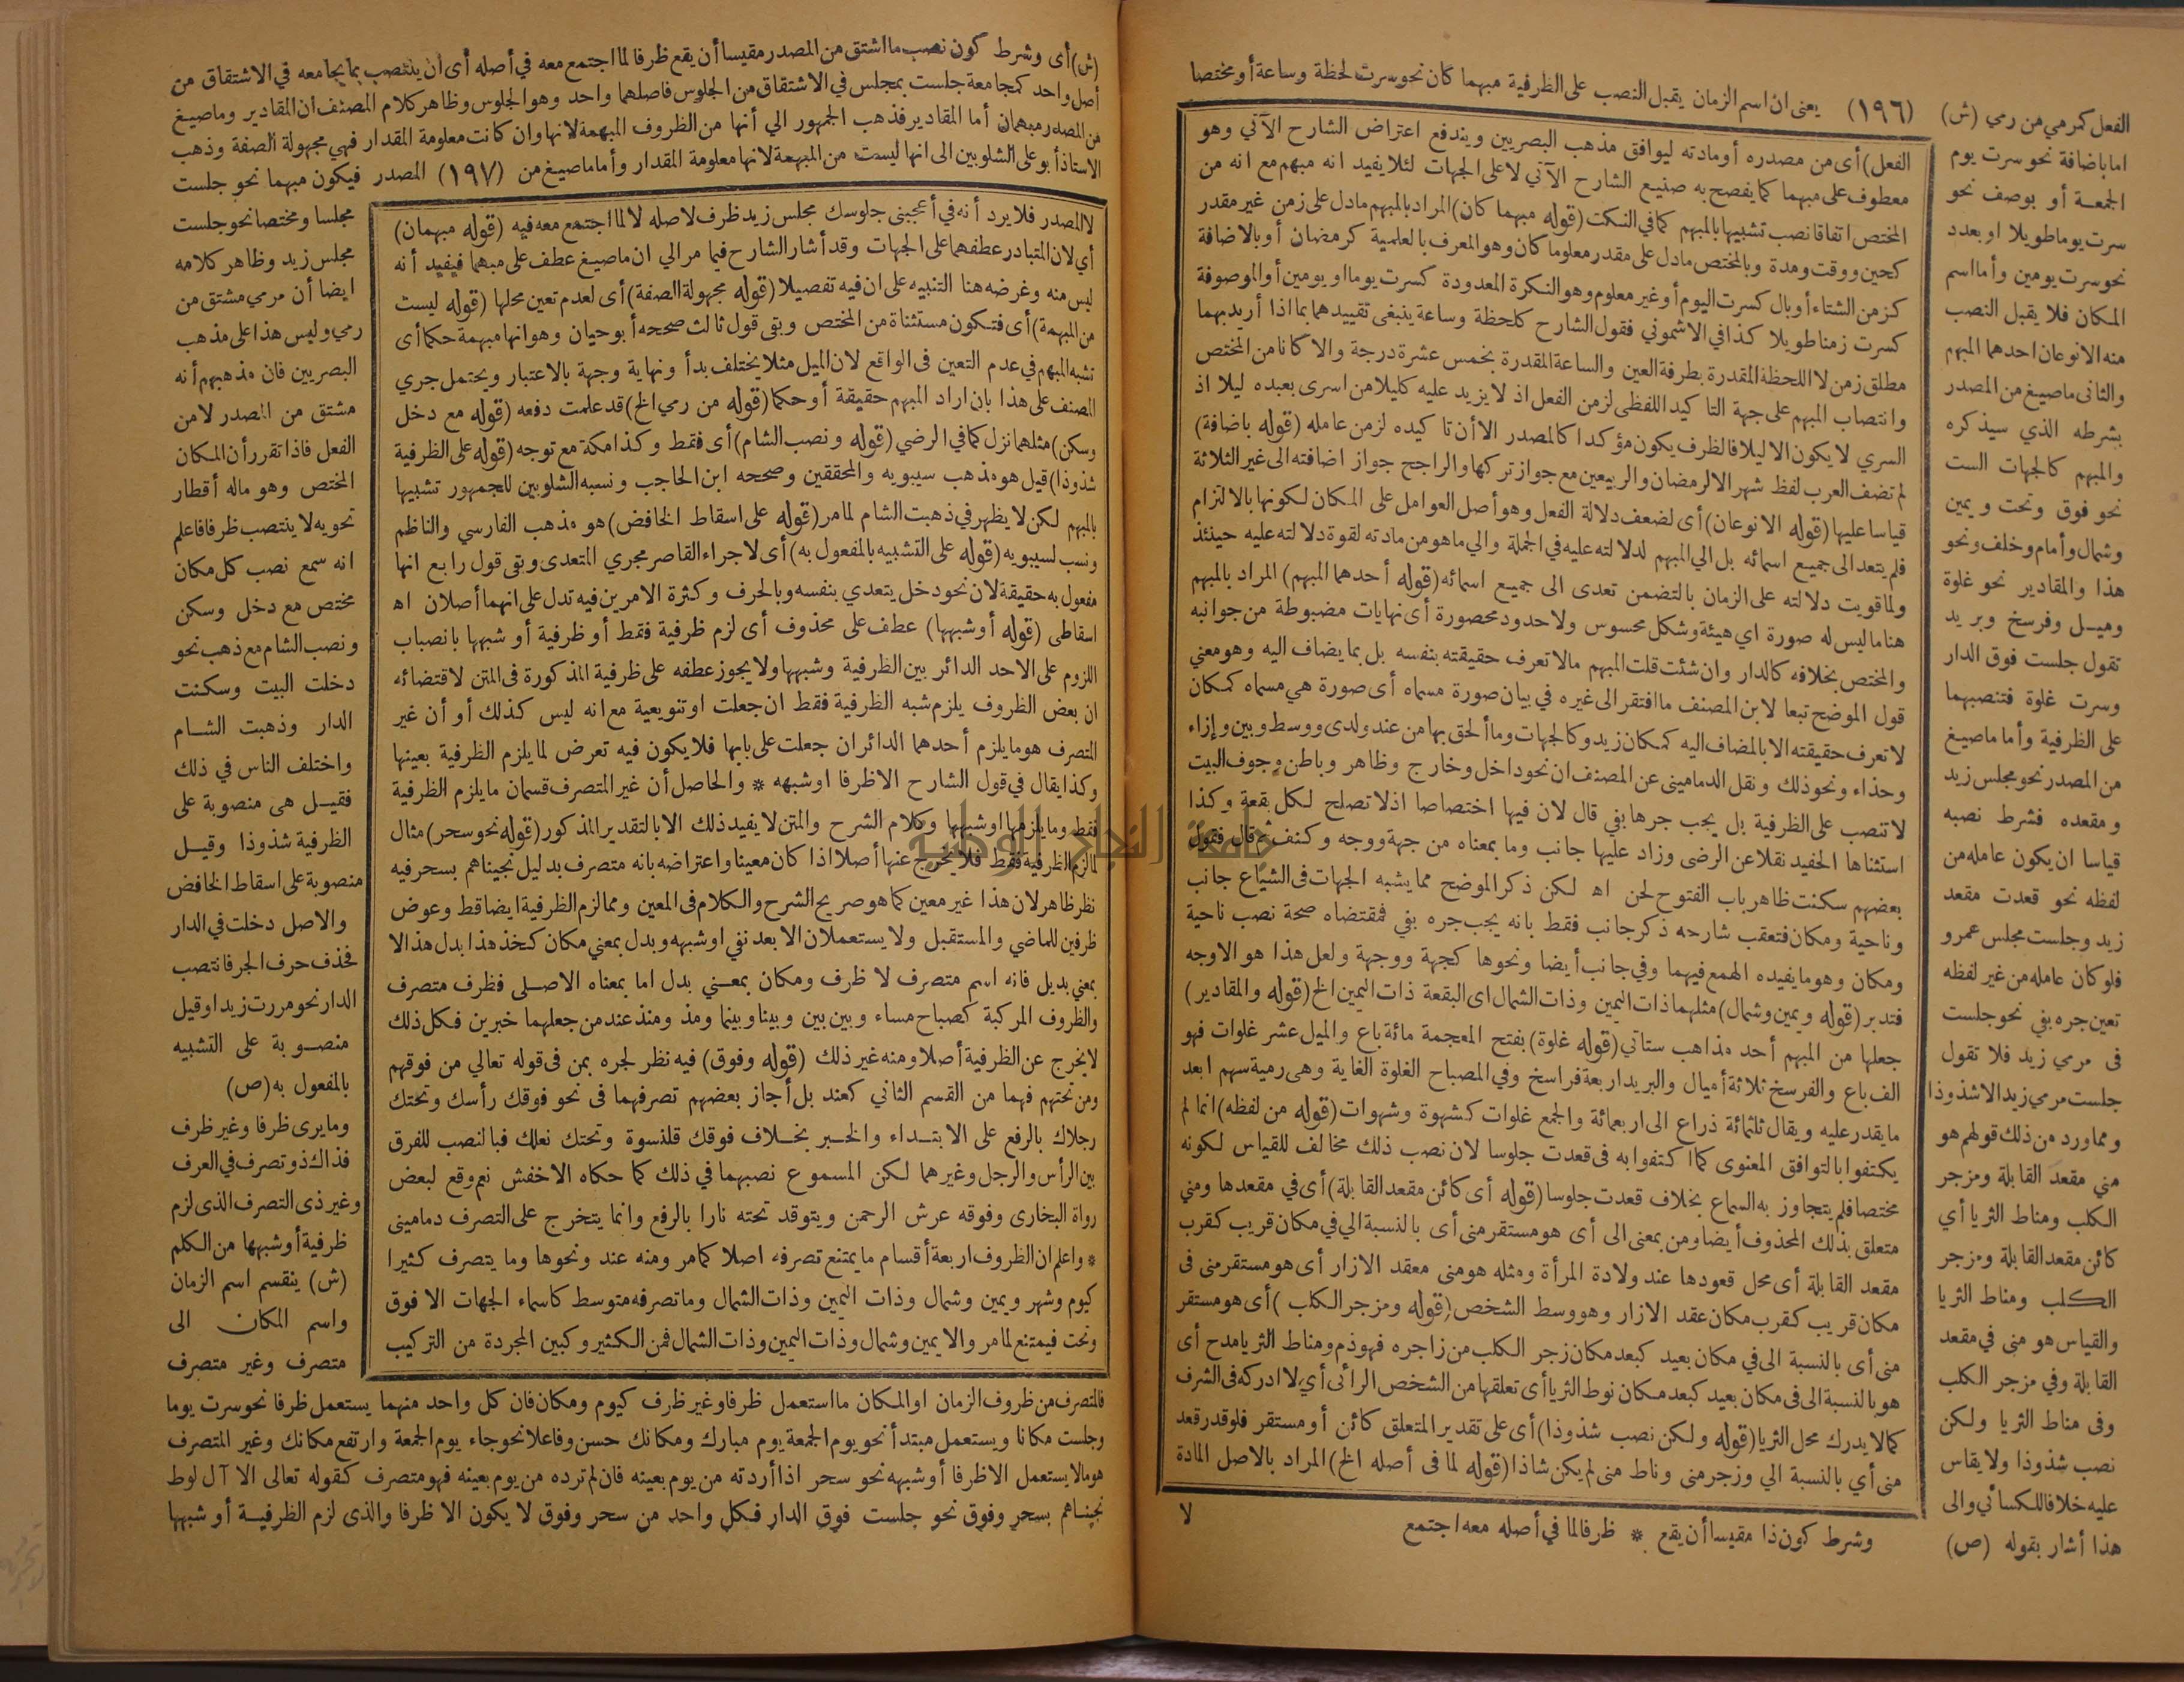 الفعل كمرمي من رمي (ش) (١٩٦) يعنى ان اسم الزمان يقبل النصب على الظرفية مبهما كان نحو سرت لحظة وساعة أو مختصا
اما باضافة نحو سرت يوم
الجمعة أو بوصف نحو
سرت يوما طويلا او بعدد
نحو سرت يومين وأما اسم
المكان فلا يقبل النصب
منه الا نوعان احدهما المبهم
والثانى ما صيغ من المصدر
بشرطه الذي سيذكره
والمبهم كالجهات الست
نحو فوق وتحت ويمين
وشمال وأمام وخلف ونحو
هذا والمقادير نحو غلوة
وميل وفرسخ وبريد
تقول جلست فوق الدار
وسرت غلوة فتنصبهما
على الظرفية وأما ما صيغ
من المصدر نحو مجلس زيد
ومقعده فشرط نصبه
قياسا ان يكون عامله من
لفظه نحو قعدت مقعد
زيد وجلست مجلس عمرو
فلو كان عامله من غير لفظه
تعين جره بفي نحو جلست
فى مرمي زيد فلا تقول
جلست مرمي زيد الا شذوذا
ومما ورد من ذلك قولهم هو
مني مقعد القابلة ومزجر
الكلب ومناط الثريا أي
كائن مقعد القابلة ومزجر
الكلب ومناط الثريا
والقياس هو منى في مقعد
القابلة وفي مزجر الكلب
وفى مناط الثريا ولكن
نصب شذوذا ولا يقاس
عليه خلافا للكسائي والى
هذا أشار بقوله (ص)
وشرط كون ذا مقيسا أن يقع * ظرفا لما في أصله معه اجتمع
الفعل) أى من مصدره أو مادته ليوافق مذهب البصريين ويندفع اعتراض الشارح الآتي وهو
معطوف على مبهما كما يفصح به صنيع الشارح الآتي لا على الجهات لئلا يفيد انه مبهم مع انه من
المختص اتفاقا نصب تشبيها بالمبهم كما في النكت (قوله مبهما كان) المراد بالمبهم ما دل على زمن غير مقدر
كحين ووقت ومدة وبالمختص ما دل على مقدر معلوما كان وهو المعرف بالعلمية كرمضان أو بالاضافة
كزمن الشتاء أو بال كسرت اليوم أو غير معلوم وهو النكرة المعدودة كسرت يوما او يومين أو الموصوفة
كسرت زمنا طويلا كذا في الاشموني فقول الشارح كلحظة وساعة ينبغى تقييدهما بما اذا أريد بهما
مطلق زمن لا اللحظة المقدرة بطرفة العين والساعة المقدرة بخمس عشرة درجة والا كانا من المختص
وانتصاب المبهم على جهة التاكيد اللفظى لزمن الفعل اذ لا يزيد عليه كليلا من اسرى بعبده ليلا اذ
السري لا يكون الا ليلا فالظرف يكون مؤكدا كالمصدر الا أن تاكيده لزمن عامله (قوله باضافة)
لم تضف العرب لفظ شهر الا لرمضان والربيعين مع جواز تركها والراجح جواز اضافته الى غير الثلاثة
قياسا عليها (قوله الا نوعان) أى لضعف دلالة الفعل وهو أصل العوامل على المكان لكونها بالالتزام
فلم يتعد الى جميع اسمائه بل الي المبهم لدلالته عليه في الجملة والي ما هو من مادته لقوة دلالته عليه حينئذ
ولما قويت دلالته على الزمان بالتضمن تعدى الى جميع اسمائه (قوله أحدهما المبهم) المراد بالمبهم
هنا ما ليس له صورة اي هيئة وشكل محسوس ولا حدود محصورة أى نهايات مضبوطة من جوانبه
والمختص بخلافه كالدار وان شئت قلت المبهم مالا تعرف حقيقته بنفسه بل بما يضاف اليه وهو معني
قول الموضح تبعا لابن المصنف ما افتقر الى غيره في بيان صورة مسماه أى صورة هي مسماه كمكان
لا تعرف حقيقته الا بالمضاف اليه كمكان زيد وكالجهات وما ألحق بها من عند ولدى ووسط وبين وإزاء
وحذاء ونحو ذلك ونقل الدماميني عن المصنف ان نحو داخل وخارج وظاهر وباطن وجوف البيت
لا تنصب على الظرفية بل يجب جرها بفي قال لان فيها اختصاصا اذ لا تصلح لكل بقعة وكذا
استثناها الحفيد نقلا عن الرضى وزاد عليها جانب وما بمعناه من جهة ووجه وكنف ثم قال فقول
بعضهم سكنت ظاهر باب الفتوح لحن اه لكن ذكر الموضح مما يشبه الجهات فى الشياع جانب
وناحية ومكان فتعقب شارحه ذكر جانب فقط بانه يجب جره بفي فمقتضاه صحة نصب ناحية
ومكان وهو ما يفيده الهمع فيهما وفي جانب أيضا ونحوها كجهة ووجهة ولعل هذا هو الاوجه
فتدبر (قوله ويمين وشمال) مثلهما ذات اليمين وذات الشمال اى البقعة ذات اليمين الخ (قوله والمقادير)
جعلها من المبهم أحد مذاهب ستاتي (قوله غلوة) بفتح المعجمة مائة باع والميل عشر غلوات فهو
الف باع والفرسخ ثلاثة أميال والبريد اربعة فراسخ وفي المصباح الغلوة الغاية وهى رمية سهم ابعد
ما يقدر عليه ويقال ثلثمائة ذراع الى اربعمائة والجمع غلوات كشهوة وشهوات (قوله من لفظه) انما لم
يكتفوا بالتوافق المعنوى كما اكتفوا به فى قعدت جلوسا لان نصب ذلك مخالف للقياس لكونه
مختصا فلم يتجاوز به السماع بخلاف قعدت جلوسا (قوله أى كائن مقعد القابلة) أى في مقعدها ومني
متعلق بذلك المحذوف أيضا ومن بمعنى الى أى هو مستقر منى أى بالنسبة الي في مكان قريب كقرب
مقعد القابلة أى محل قعودها عند ولادة المرأة ومثله هو مني معقد الازار أى هو مستقر منى فى
مكان قريب كقرب مكان عقد الازار وهو وسط الشخص (قوله ومزجر الكلب) أى هو مستقر
منى أى بالنسبة الى في مكان بعيد كبعد مكان زجر الكلب من زاجره فهو ذم ومناط الثريا مدح أى
هو بالنسبة الى فى مكان بعيد كبعد مكان نوط الثريا أى تعلقها من الشخص الرائى أي لا ادركه فى الشرف
كما لا يدرك محل الثريا (قوله ولكن نصب شذوذا) أى على تقدير المتعلق كائن أو مستقر فلو قدر قعد
منى أي بالنسبة الي وزجر منى وناط منى لم يكن شاذا (قوله لما فى أصله الخ) المراد بالاصل المادة
لا
(ش) أى وشرط كون نصب ما اشتق من المصدر مقيسا أن يقع ظرفا لما اجتمع معه في أصله أى ان ينتصب بما يجامعه في الاشتقاق من
أصل واحد كمجامعة جلست بمجلس في الاشتقاق من الجلوس فاصلهما واحد وهو الجلوس وظاهر كلام المصنف ان المقادير وما صيغ
من المصدر مبهمان أما المقادير فذهب الجمهور الي أنها من الظروف المبهمة لانها وان كانت معلومة المقدار فهي مجهولة الصفة وذهب
الاستاذ أبو على الشلوبين الى انها ليست من المبهمة لانها معلومة المقدار وأما ما صيغ من (١٩٧) المصدر فيكون مبهما نحو جلست
مجلسا ومختصا نحو جلست
مجلس زيد وظاهر كلامه
ايضا أن مرمي مشتق من
رمي وليس هذا على مذهب
البصريين فان مذهبهم أنه
مشتق من المصدر لا من
الفعل فاذا تقرر أن المكان
المختص وهو ماله أقطار
تحويه لا ينتصب ظرفا فاعلم
انه سمع نصب كل مكان
مختص مع دخل وسكن
ونصب الشام مع ذهب نحو
دخلت البيت وسكنت
الدار وذهبت الشام
واختلف الناس في ذلك
فقيل هى منصوبة على
الظرفية شذوذا وقيل
منصوبة على اسقاط الخافض
والاصل دخلت في الدار
فحذف حرف الجر فانتصب
الدار نحو مررت زيدا وقيل
منصوبة على التشبيه
بالمفعول به (ص)
وما يرى ظرفا وغير ظرف
فذاك ذو تصرف في العرف
وغير ذى التصرف الذى لزم
ظرفية أو شبهها من الكلم
(ش) ينقسم اسم الزمان
واسم المكان الى
متصرف وغير متصرف
لا المصدر فلا يرد أنه في أعجبنى جلوسك مجلس زيد ظرف لاصله لا لما اجتمع معه فيه (قوله مبهمان)
أي لان المتبادر عطفهما على الجهات وقد أشار الشارح فيما مر الي ان ما صيغ عطف على مبهما فيفيد أنه
ليس منه وغرضه هنا التنبيه على ان فيه تفصيلا (قوله مجهولة الصفة) أى لعدم تعين محلها (قوله ليست
من المبهمة) أى فتكون مستثناة من المختص وبقى قول ثالث صححه أبو حيان وهو انها مبهمة حكما أى
تشبه المبهم في عدم التعين فى الواقع لان الميل مثلا يختلف بدأ ونهاية وجهة بالاعتبار ويحتمل جري
المصنف على هذا بان اراد المبهم حقيقة أو حكما (قوله من رمي الخ) قد علمت دفعه (قوله مع دخل
وسكن) مثلهما نزل كما في الرضي (قوله ونصب الشام) أى فقط وكذا مكة مع توجه (قوله على الظرفية
شذوذا) قيل هو مذهب سيبويه والمحققين وصححه ابن الحاجب ونسبه الشلوبين للجمهور تشبيها
بالمبهم لكن لا يظهر في ذهبت الشام لما مر (قوله على اسقاط الخافض) هو مذهب الفارسي والناظم
ونسب لسيبويه (قوله على التشبيه بالمفعول به) أى لاجراء القاصر مجري المتعدى وبقى قول رابع انها
مفعول به حقيقة لان نحو دخل يتعدي بنفسه وبالحرف وكثرة الامرين فيه تدل على انهما أصلان اه
اسقاطى (قوله أو شبهها) عطف على محذوف أى لزم ظرفية فقط أو ظرفية أو شبهها بانصباب
اللزوم على الاحد الدائر بين الظرفية وشبهها ولا يجوز عطفه على ظرفية المذكورة فى المتن لاقتضائه
ان بعض الظروف يلزم شبه الظرفية فقط ان جعلت او تنويعية مع انه ليس كذلك أو أن غير
المتصرف هو ما يلزم أحدهما الدائر ان جعلت على بابها فلا يكون فيه تعرض لما يلزم الظرفية بعينها
وكذا يقال في قول الشارح الا ظرفا او شبهه * والحاصل أن غير المتصرف قسمان ما يلزم الظرفية
فقط وما يلزمها او شبهها وكلام الشرح والمتن لا يفيد ذلك الا بالتقدير المذكور (قوله نحو سحر) مثال
لما لزم الظرفية فقط فلا يخرج عنها أصلا اذا كان معينا واعتراضه بانه متصرف بدليل نجيناهم بسحر فيه
نظر ظاهر لان هذا غير معين كما هو صريح الشرح والكلام فى المعين ومما لزم الظرفية ايضا قط وعوض
ظرفين للماضي والمستقبل ولا يستعملان الا بعد نفي او شبهه وبدل بمعني مكان كخذ هذا بدل هذا لا
بمعني بديل فانه اسم متصرف لا ظرف ومكان بمعني بدل اما بمعناه الاصلى فظرف متصرف
والظروف المركبة كصباح مساء وبين بين وبينا وبينما ومذ ومنذ عند من جعلهما خبرين فكل ذلك
لا يخرج عن الظرفية أصلا ومنه غير ذلك (قوله وفوق) فيه نظر لجره بمن فى قوله تعالي من فوقهم
ومن تحتهم فهما من القسم الثاني كعند بل أجاز بعضهم تصرفهما فى نحو فوقك رأسك وتحتك
رجلاك بالرفع على الابتداء والخبر بخلاف فوقك قلنسوة وتحتك نعلك فبالنصب للفرق
بين الرأس والرجل وغيرهما لكن المسموع نصبهما في ذلك كما حكاه الاخفش نعم وقع لبعض
رواة البخارى وفوقه عرش الرحمن ويتوقد تحته نارا بالرفع وانما يتخرج على التصرف دمامينى
* واعلم ان الظروف اربعة أقسام ما يمتنع تصرفه اصلا كما مر ومنه عند ونحوها وما يتصرف كثيرا
كيوم وشهر ويمين وشمال وذات اليمين وذات الشمال وما تصرفه متوسط كاسماء الجهات الا فوق
وتحت فيمتنع لما مر والا يمين وشمال وذات اليمين وذات الشمال فمن الكثير وكبين المجردة من التركيب
فالمتصرف من ظروف الزمان او المكان ما استعمل ظرفا وغير ظرف كيوم ومكان فان كل واحد منهما يستعمل ظرفا نحو سرت يوما
وجلست مكانا ويستعمل مبتدأ نحو يوم الجمعة يوم مبارك ومكانك حسن وفاعلا نحو جاء يوم الجمعة وارتفع مكانك وغير المتصرف
هو مالا يستعمل الا ظرفا أو شبهه نحو سحر اذا أردته من يوم بعينه فان لم ترده من يوم بعينه فهو متصرف كقوله تعالى الا آل لوط
نجيناهم بسحر وفوق نحو جلست فوق الدار فكل واحد من سحر وفوق لا يكون الا ظرفا والذى لزم الظرفية أو شبهها
جامعة النجاح الوطنية